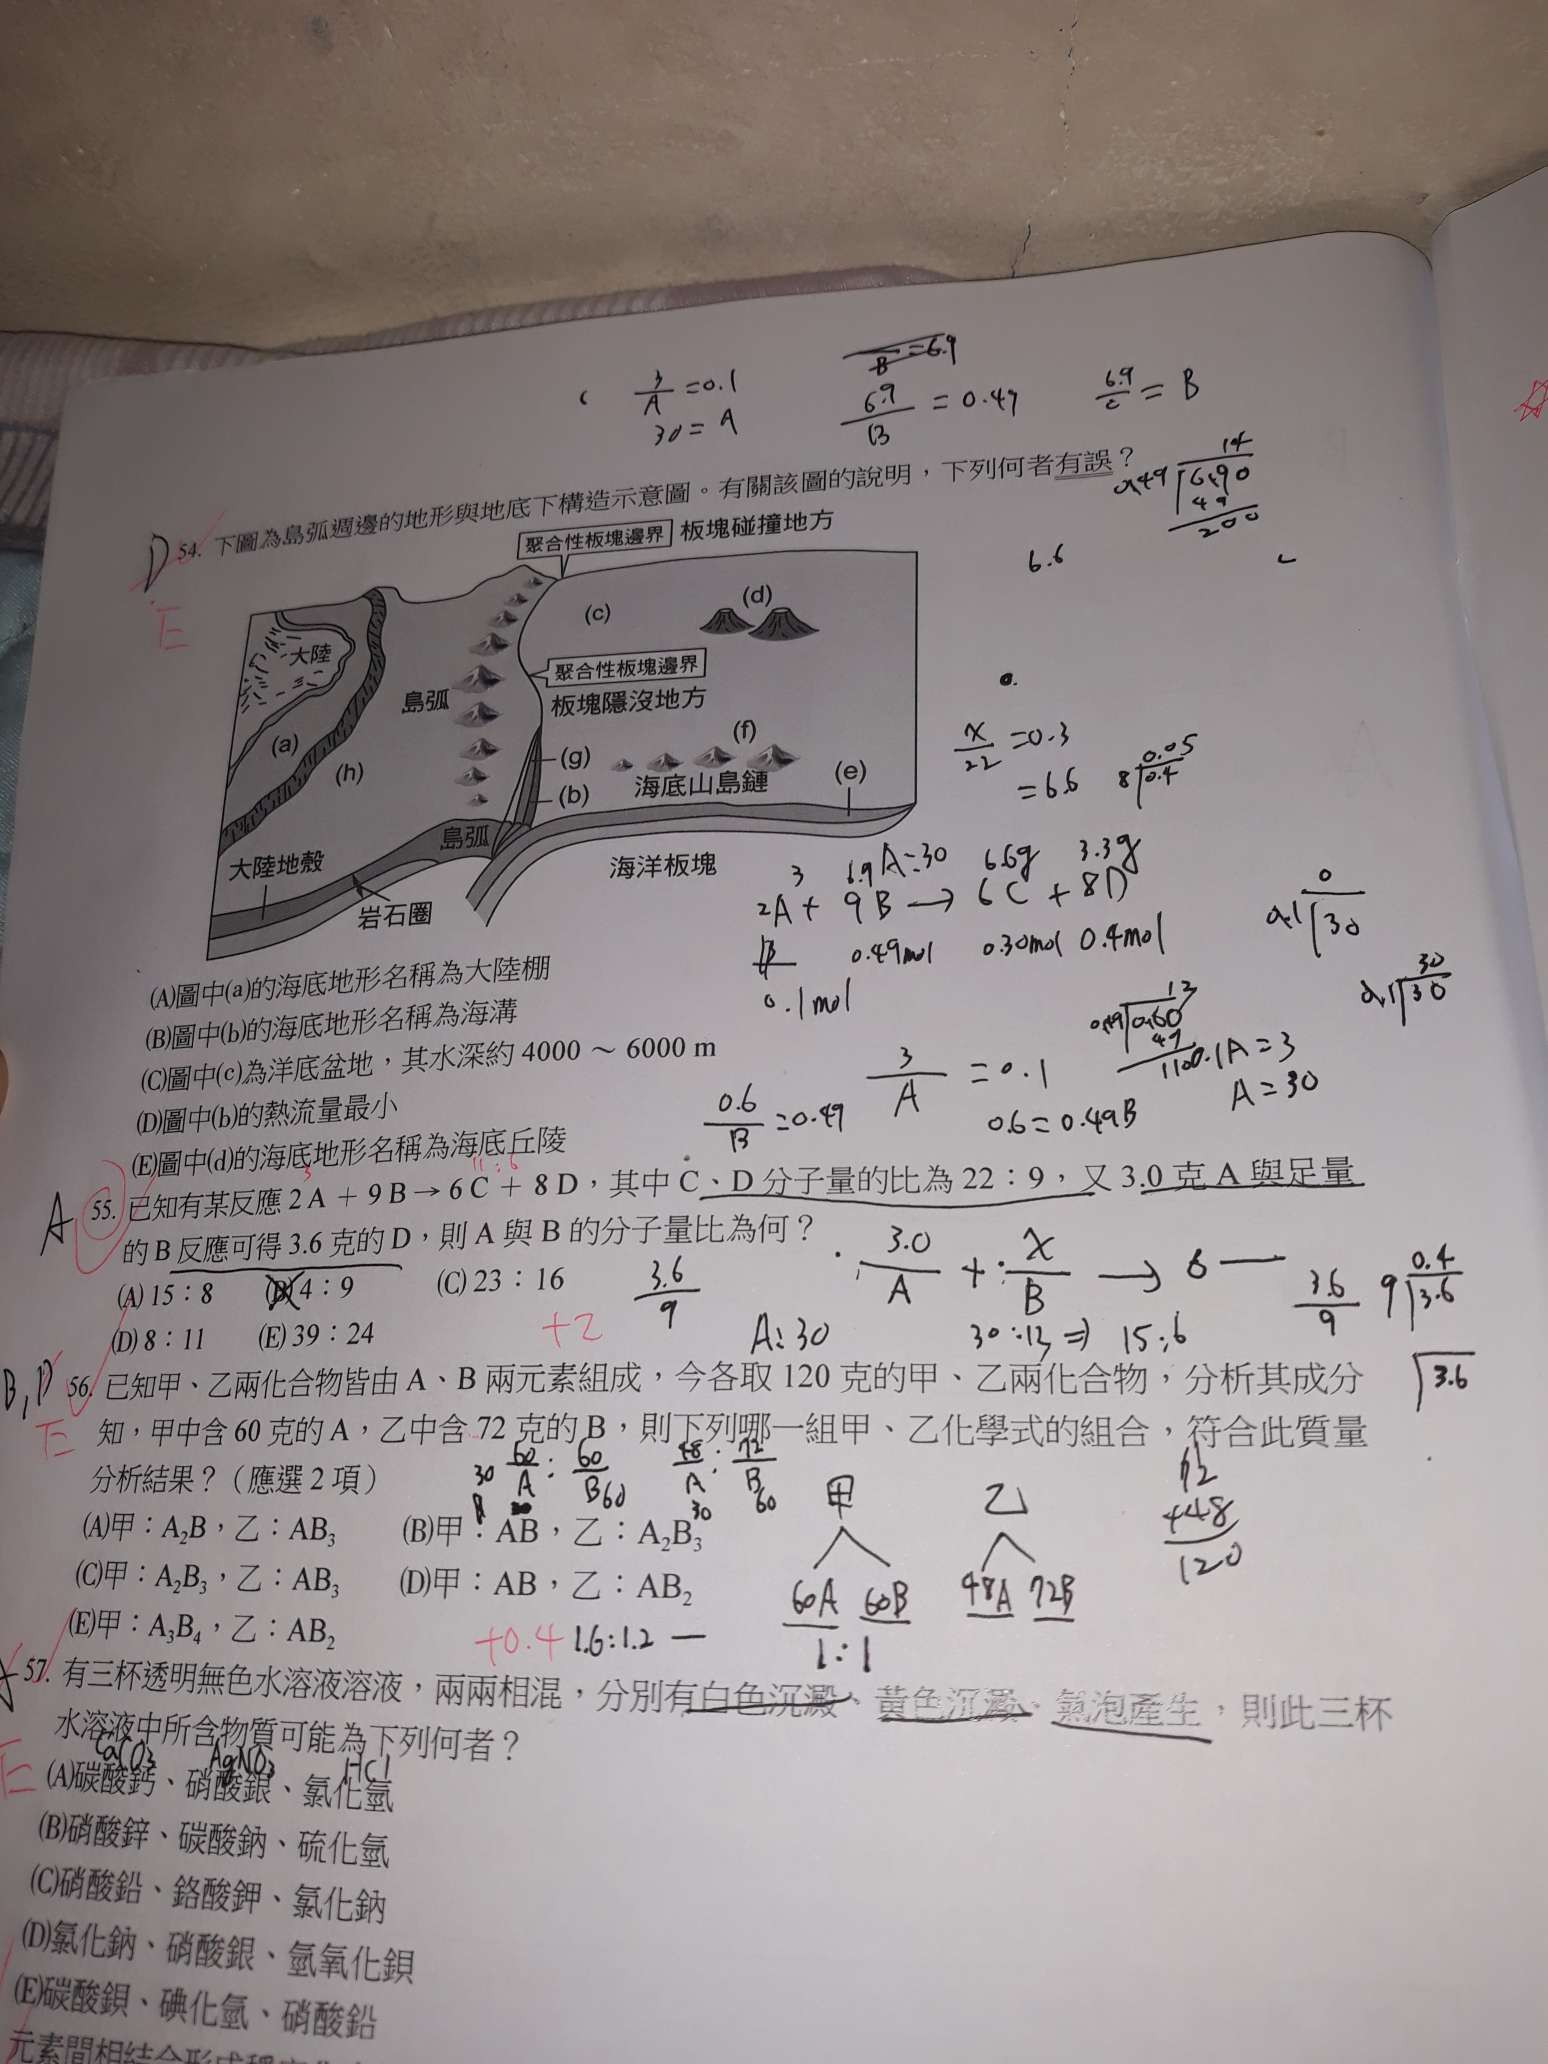 3/A = 0.1
30 = A
B = 6.9
6.9/B = 0.49
6.9/c = B
D 54. 下圖為島弧週邊的地形與地底下構造示意圖。有關該圖的說明，下列何者有誤？
E
14
0.49 6.90
49
200
6.6
聚合性板塊邊界 板塊碰撞地方
(c)
(d)
大陸
聚合性板塊邊界
島弧
板塊隱沒地方
(a)
(h)
(g)
(f)
(b)
海底山島鏈
(e)
島弧
大陸地殼
海洋板塊
岩石圈
x/22 = 0.3
= 6.6
0.05
8 0.4
3 6.9 A=30 6.6g 3.3g
2A + 9B → 6C + 8D
0.49mol 0.30mol 0.4mol
0.1mol
0
0.1 30
30
0.1 30
(A)圖中(a)的海底地形名稱為大陸棚
(B)圖中(b)的海底地形名稱為海溝
(C)圖中(c)為洋底盆地，其水深約 4000 ～ 6000 m
(D)圖中(b)的熱流量最小
(E)圖中(d)的海底地形名稱為海底丘陵
12
0.49 0.60
49
110
3/A = 0.1
0.1A = 3
A = 30
0.6/B = 0.49
0.6 = 0.49B
3 11:6
A 55. 已知有某反應 2 A ＋ 9 B → 6 C ＋ 8 D，其中 C、D 分子量的比為 22：9，又 3.0 克 A 與足量
的 B 反應可得 3.6 克的 D，則 A 與 B 的分子量比為何？
(A) 15：8 (B) 4：9 (C) 23：16
(D) 8：11 (E) 39：24
3.6/9
3.0/A + x/B → 6
3.6/9
0.4
9 3.6
+2
A=30
30:12 ⇒ 15:6
3.6
B,D 56. 已知甲、乙兩化合物皆由 A、B 兩元素組成，今各取 120 克的甲、乙兩化合物，分析其成分
E
知，甲中含 60 克的 A，乙中含 72 克的 B，則下列哪一組甲、乙化學式的組合，符合此質量
分析結果？（應選 2 項）
30 60/A : 60/B 60
48/A : 72/B
30 60
(A)甲：A₂B，乙：AB₃ (B)甲：AB，乙：A₂B₃
(C)甲：A₂B₃，乙：AB₃ (D)甲：AB，乙：AB₂
(E)甲：A₃B₄，乙：AB₂
甲 乙
60A 60B 48A 72B
1:1
72
+48
120
+0.4 1.6:1.2 —
57. 有三杯透明無色水溶液溶液，兩兩相混，分別有白色沉澱、黃色沉澱、氣泡產生，則此三杯
水溶液中所含物質可能為下列何者？
CaCO₃ AgNO₃ HCl
E
(A)碳酸鈣、硝酸銀、氯化氫
(B)硝酸鋅、碳酸鈉、硫化氫
(C)硝酸鉛、鉻酸鉀、氯化鈉
(D)氯化鈉、硝酸銀、氫氧化鋇
(E)碳酸鋇、碘化氫、硝酸鉛